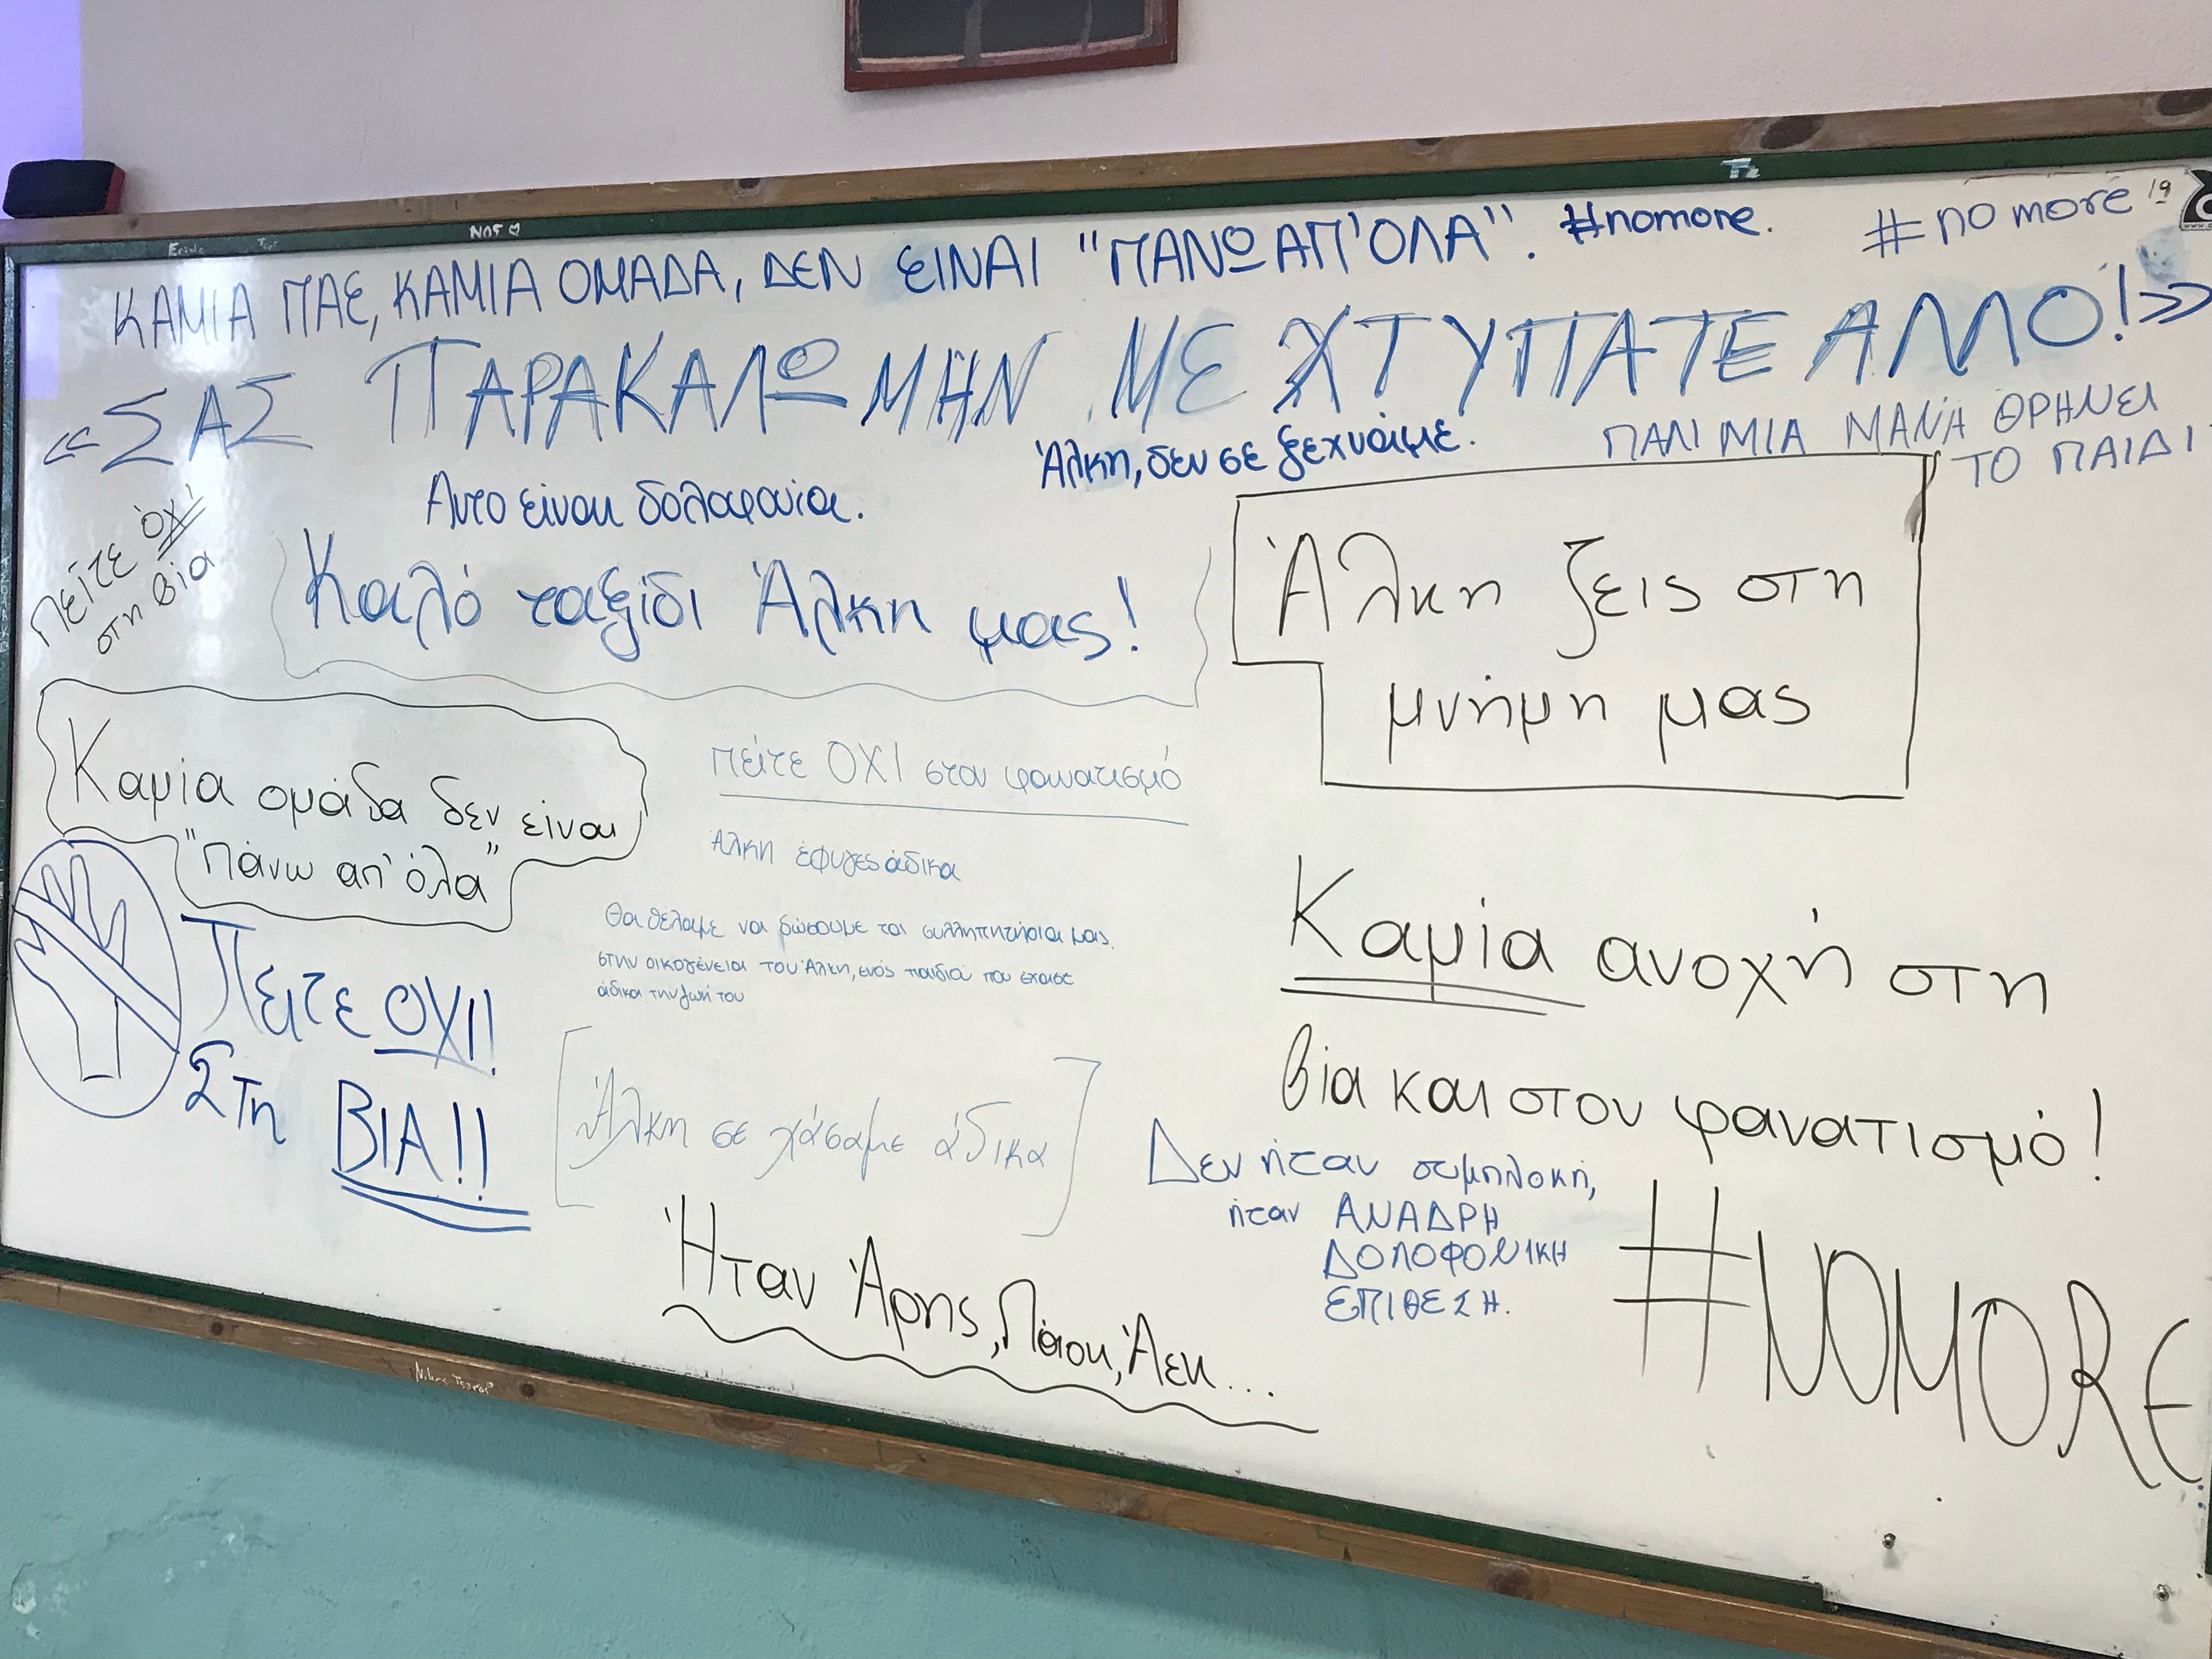 ΝΩΓ
ΚΑΜΙΑ ΠΑΕ, ΚΑΜΙΑ ΟΜΑΔΑ, ΔΕΝ ΕΙΝΑΙ "ΠΑΝΩ ΑΠ'ΟΛΑ". #nomore.
#no more
19
«ΣΑΣ ΠΑΡΑΚΑΛΩ ΜΗΝ ΜΕ ΧΤΥΠΑΤΕ ΑΛΛΟ!»
Άλκη, δεν σε ξεχνάμε.
ΠΑΛΙ ΜΙΑ ΜΑΝΑ ΘΡΗΝΕΙ
ΤΟ ΠΑΙΔΙ
Αυτο είναι δολοφονία.
πείτε όχι
στη βία
Καλό ταξίδι Άλκη μας!
Άλκη ζεις στη
μνήμη μας
Καμία ομάδα δεν είναι
"Πάνω απ'όλα"
πείτε ΟΧΙ στον φανατισμό
Άλκη έφυγες άδικα
Θα θέλαμε να δώσουμε τα συλληπητήρια μας
στην οικογένεια του Άλκη, ενός παιδιού που έχασε
άδικα την ζωή του
Πείτε ΟΧΙ!
Στη ΒΙΑ!!
Άλκη σε χάσαμε άδικα
Καμία ανοχή στη
βία και στον φανατισμό!
Δεν ήταν συμπλοκή,
ήταν ΑΝΑΔΡΗ
ΔΟΛΟΦΟΝΙΚΗ
ΕΠΙΘΕΣΗ.
Ήταν Άρης, Πάοκ, Άεκ...
#NOMORE